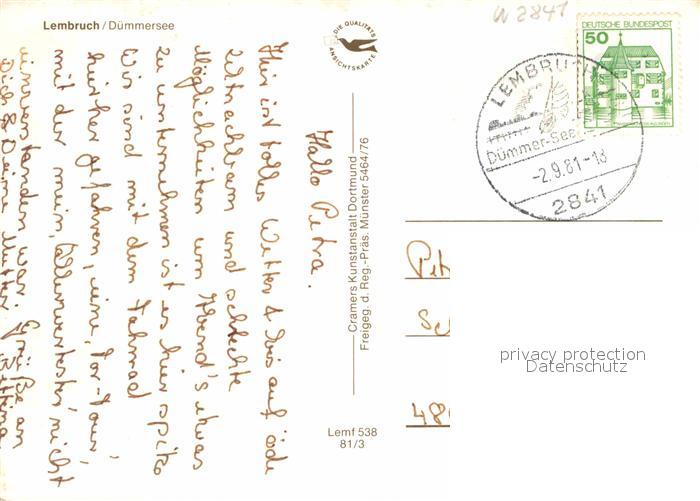 Lembruch / Dümmersee
DIE QUALITÄTS
ANSICHTSKARTE
W 2841
DEUTSCHE BUNDESPOST
50
LEMBRUCH
Dümmer-See
-2.9.81-18
2841
Hallo Petra.
Hier ist tolles Wetter & bis auf öde
Zeltnachbarn und schlechte
Möglichkeiten um Abend's etwas
zu unternehmen ist es hier spitze
Wir sind mit dem Fahrrad
hierher gefahren, eine, Tor-Tour,
mit der mein, Allerwertester' nicht
einverstanden war. Grüße an
Dich & Deine Mutter Bettina
Cramers Kunstanstalt Dortmund
Freigeg. d. Reg.-Präs. Münster 5464/76
Lemf 538
81/3
Pet
Sc
480
privacy protection
Datenschutz